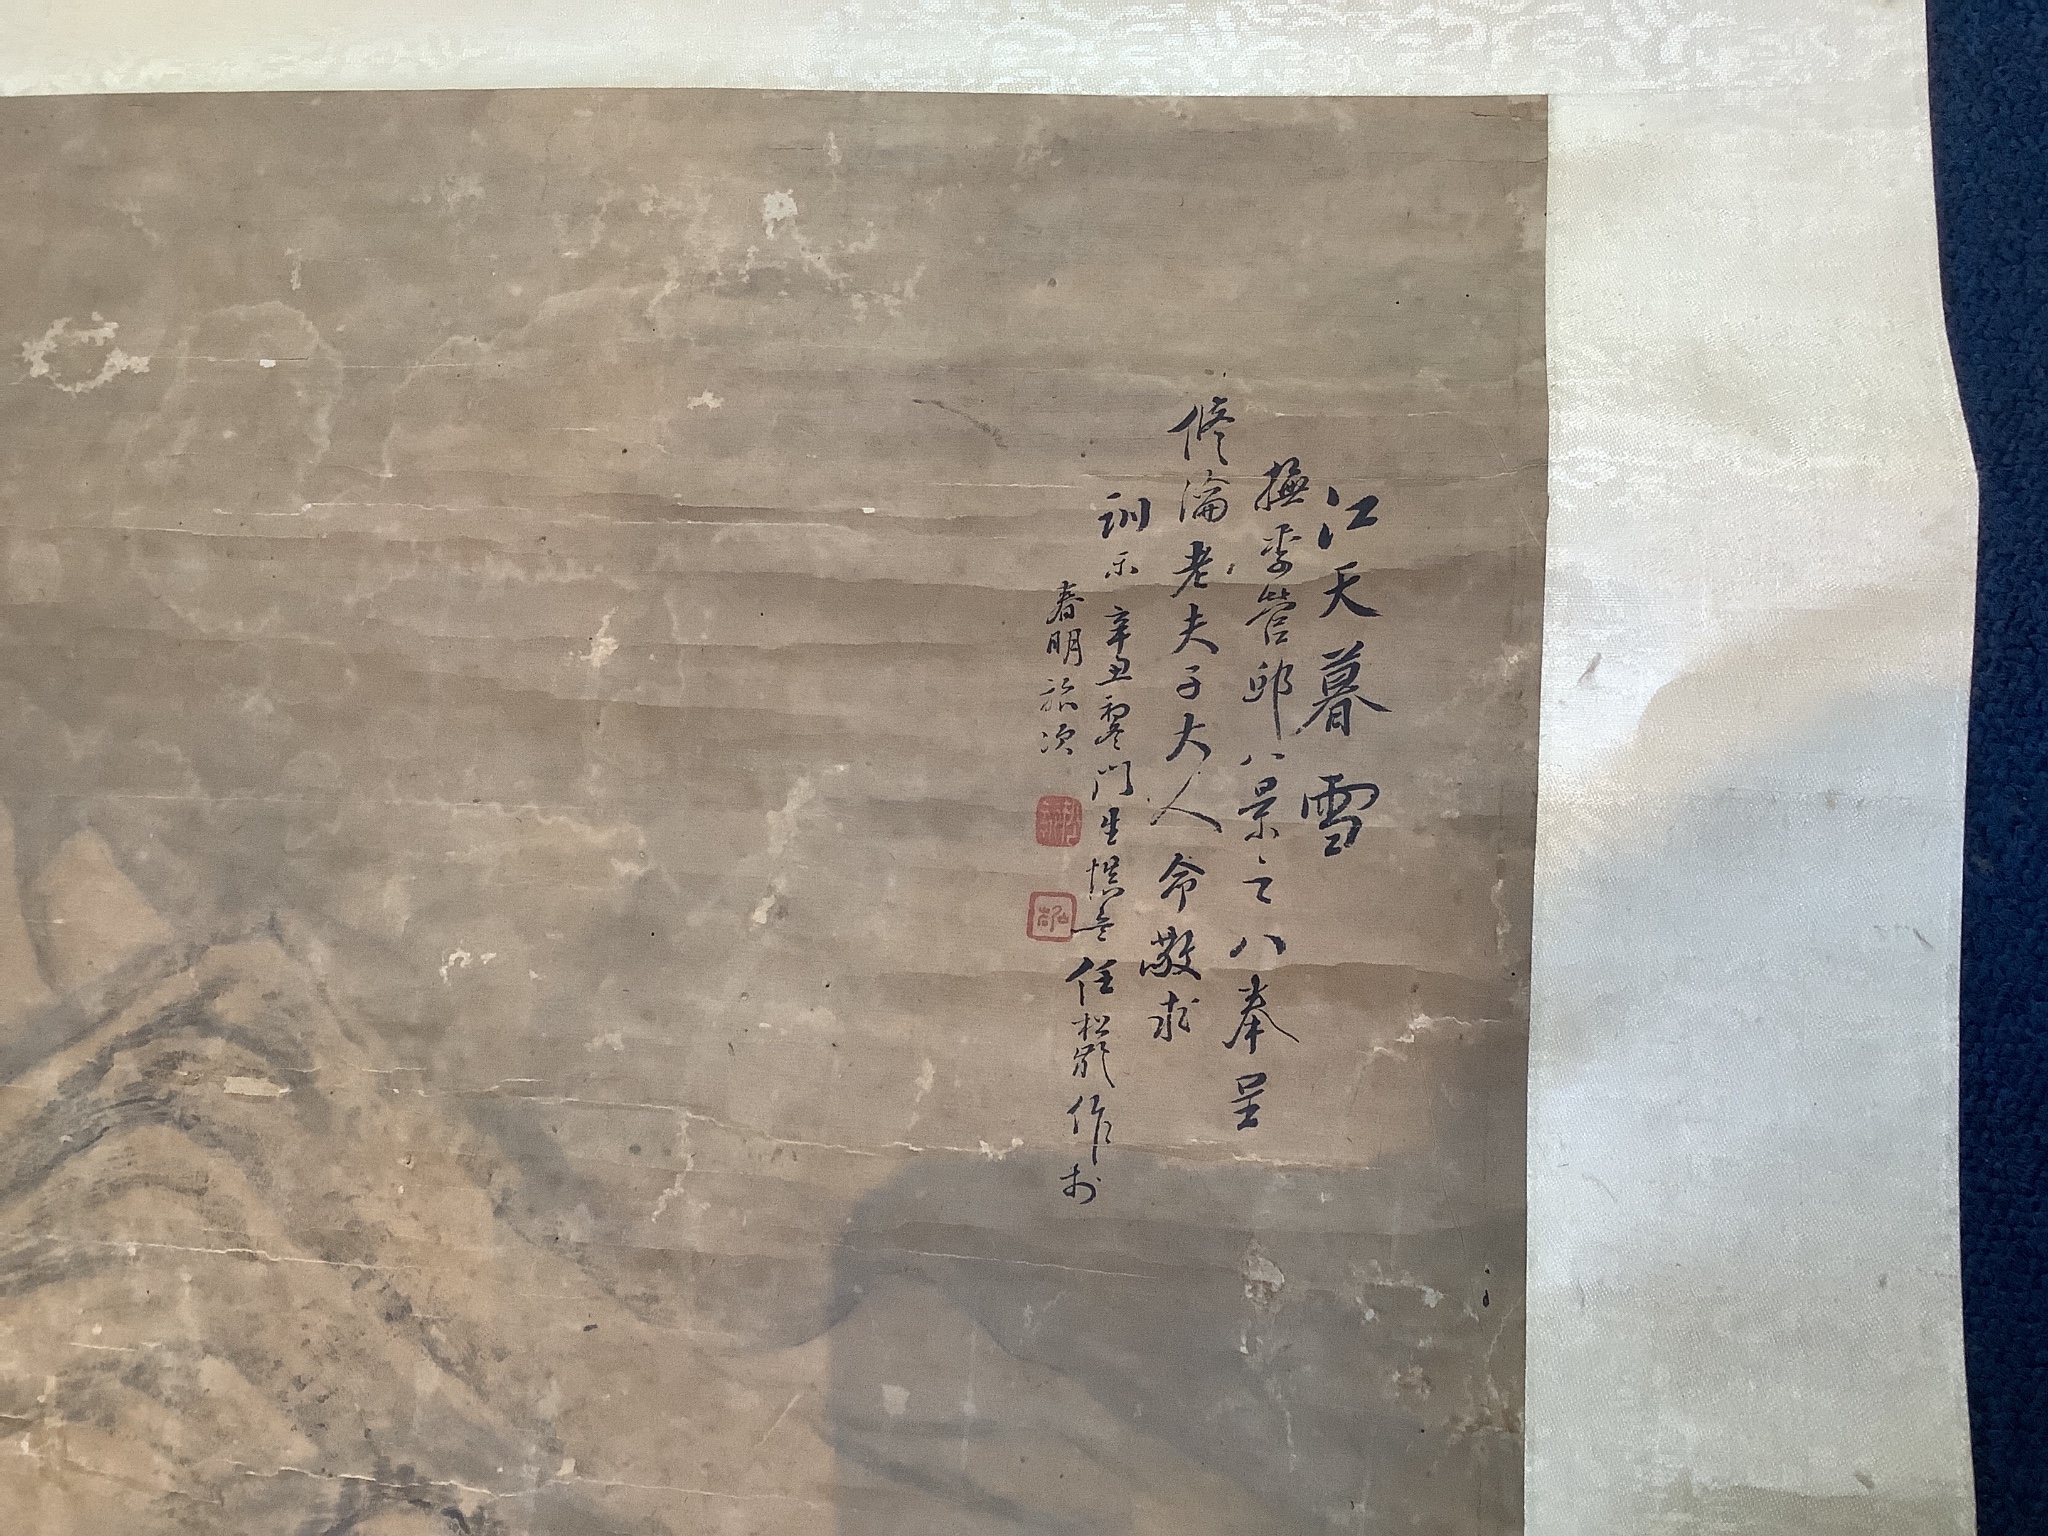 江天暮雪
撫李營邱八景之八奉呈
修淪老夫子大人命敬求
訓示辛丑門生任松作於
春明旅次